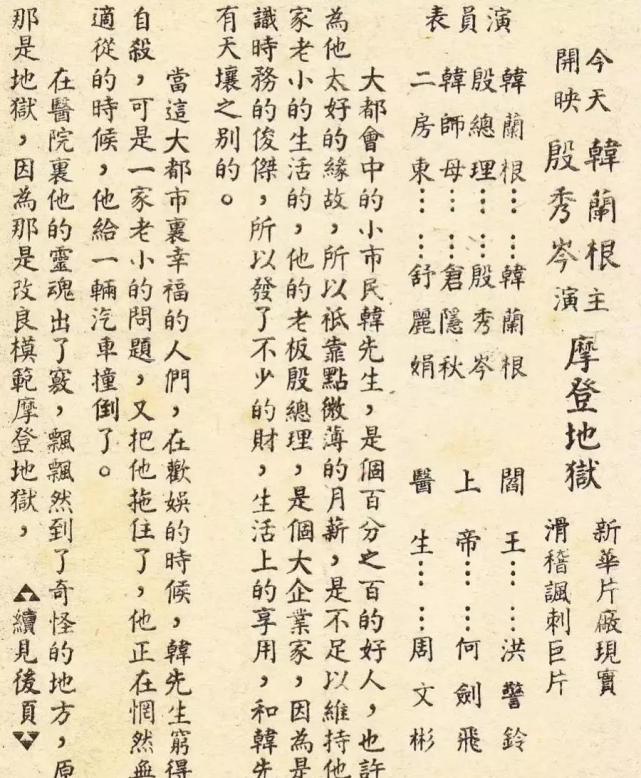 今天
開映
韓蘭根主
殷秀岑演
摩登地獄
新華片廠現實
滑稽諷刺巨片
演員表
韓蘭根……韓蘭根
殷總理……殷秀岑
韓師母……倉隱秋
二房東……舒麗娟
閻王……洪警鈴
上帝……何劍飛
醫生……周文彬
大都會中的小市民韓先生,是個百分之百的好人,也許
為他太好的緣故,所以祗靠點微薄的月薪,是不足以維持他
家老小的生活的,他的老板殷總理,是個大企業家,因為是
識時務的俊傑,所以發了不少的財,生活上的享用,和韓先
有天壤之别的。
當這大都市裏幸福的人們,在歡娛的時候,韓先生窮得
自殺,可是一家老小的問題,又把他拖住了,他正在惘然無
適從的時候,他給一輛汽車撞倒了。
在醫院裏他的靈魂出了竅,飄飄然到了奇怪的地方,原
那是地獄,因為那是改良模範摩登地獄,
續見後頁